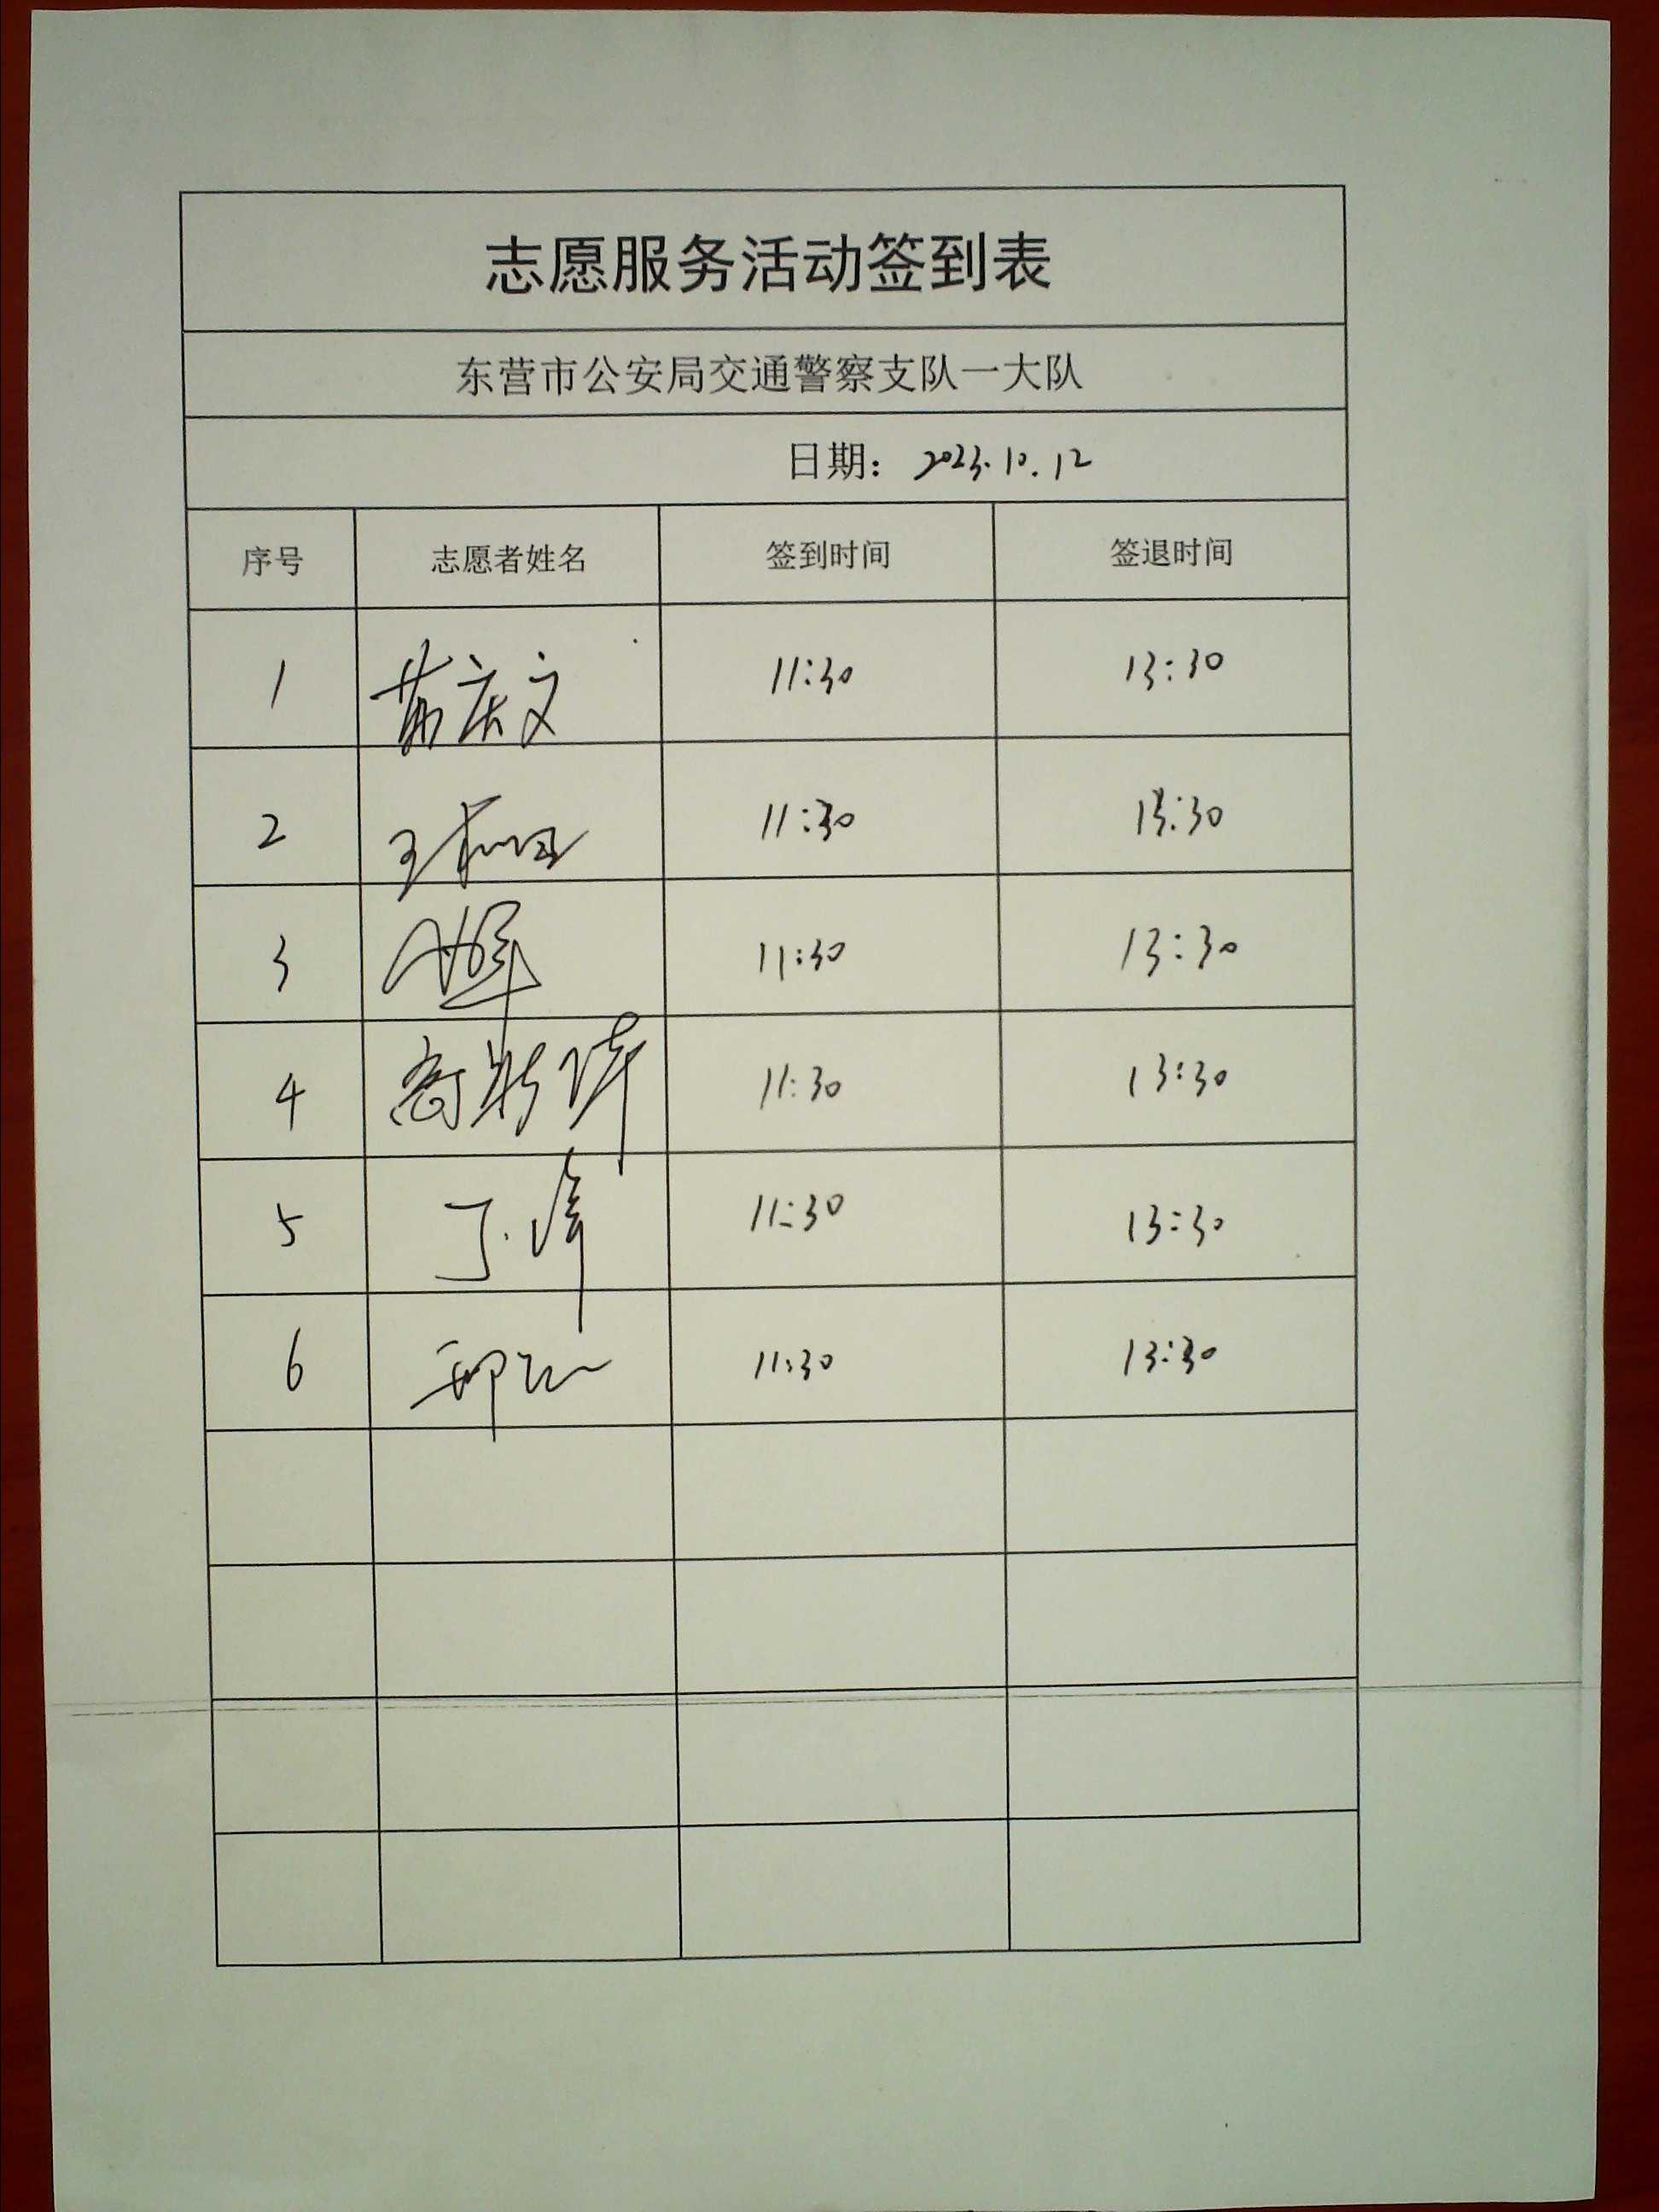 志愿服务活动签到表
东营市公安局交通警察支队一大队
日期： 2023.10.12
序号 志愿者姓名 签到时间 签退时间
1 11:30 13:30
2 11:30 13:30
3 11:30 13:30
4 11:30 13:30
5 丁峰 11:30 13:30
6 11:30 13:30